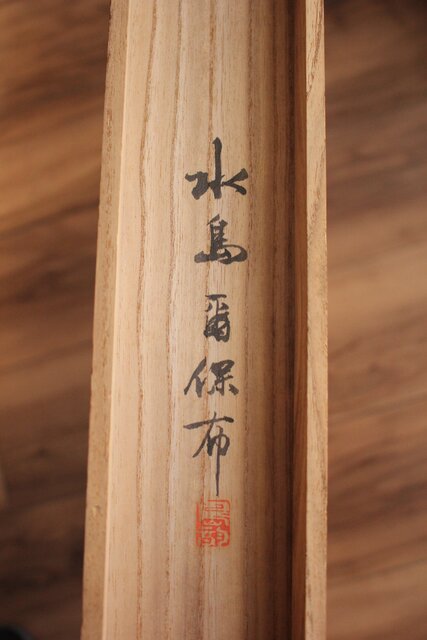 水島爾保布